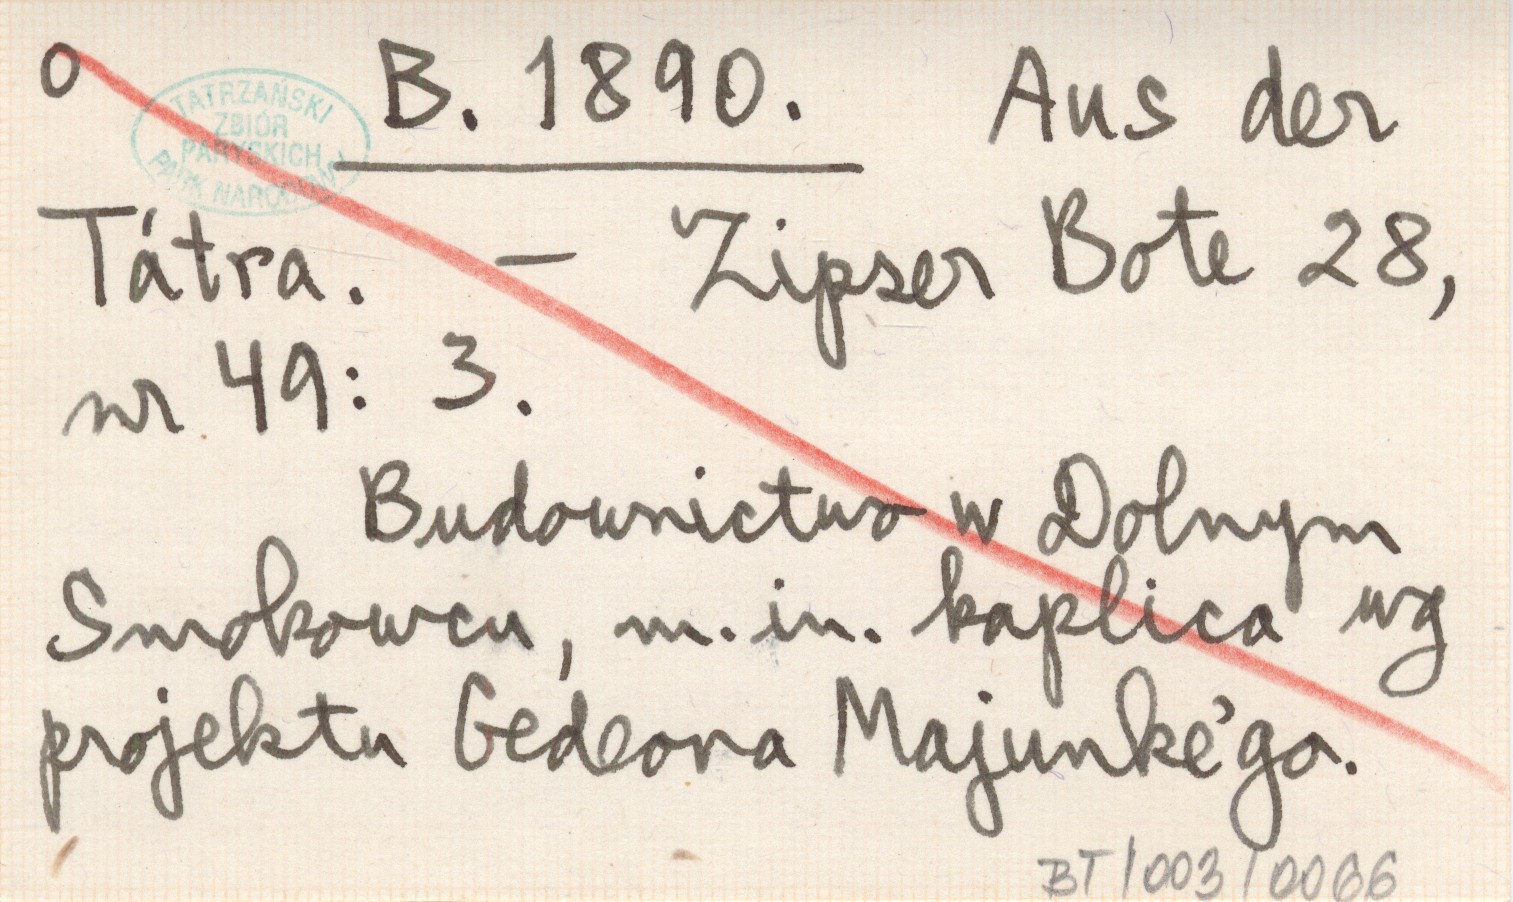 o B. 1890. Aus der
TATRZAŃSKI
ZBIÓR
PARYSKICH
PARK NARODOWY
Tátra. – Zipser Bote 28,
nr 49: 3.
Budownictwo w Dolnym
Smokowcu, m.in. kaplica wg
projektu Gedeona Majunke'go.
BT/003/0066